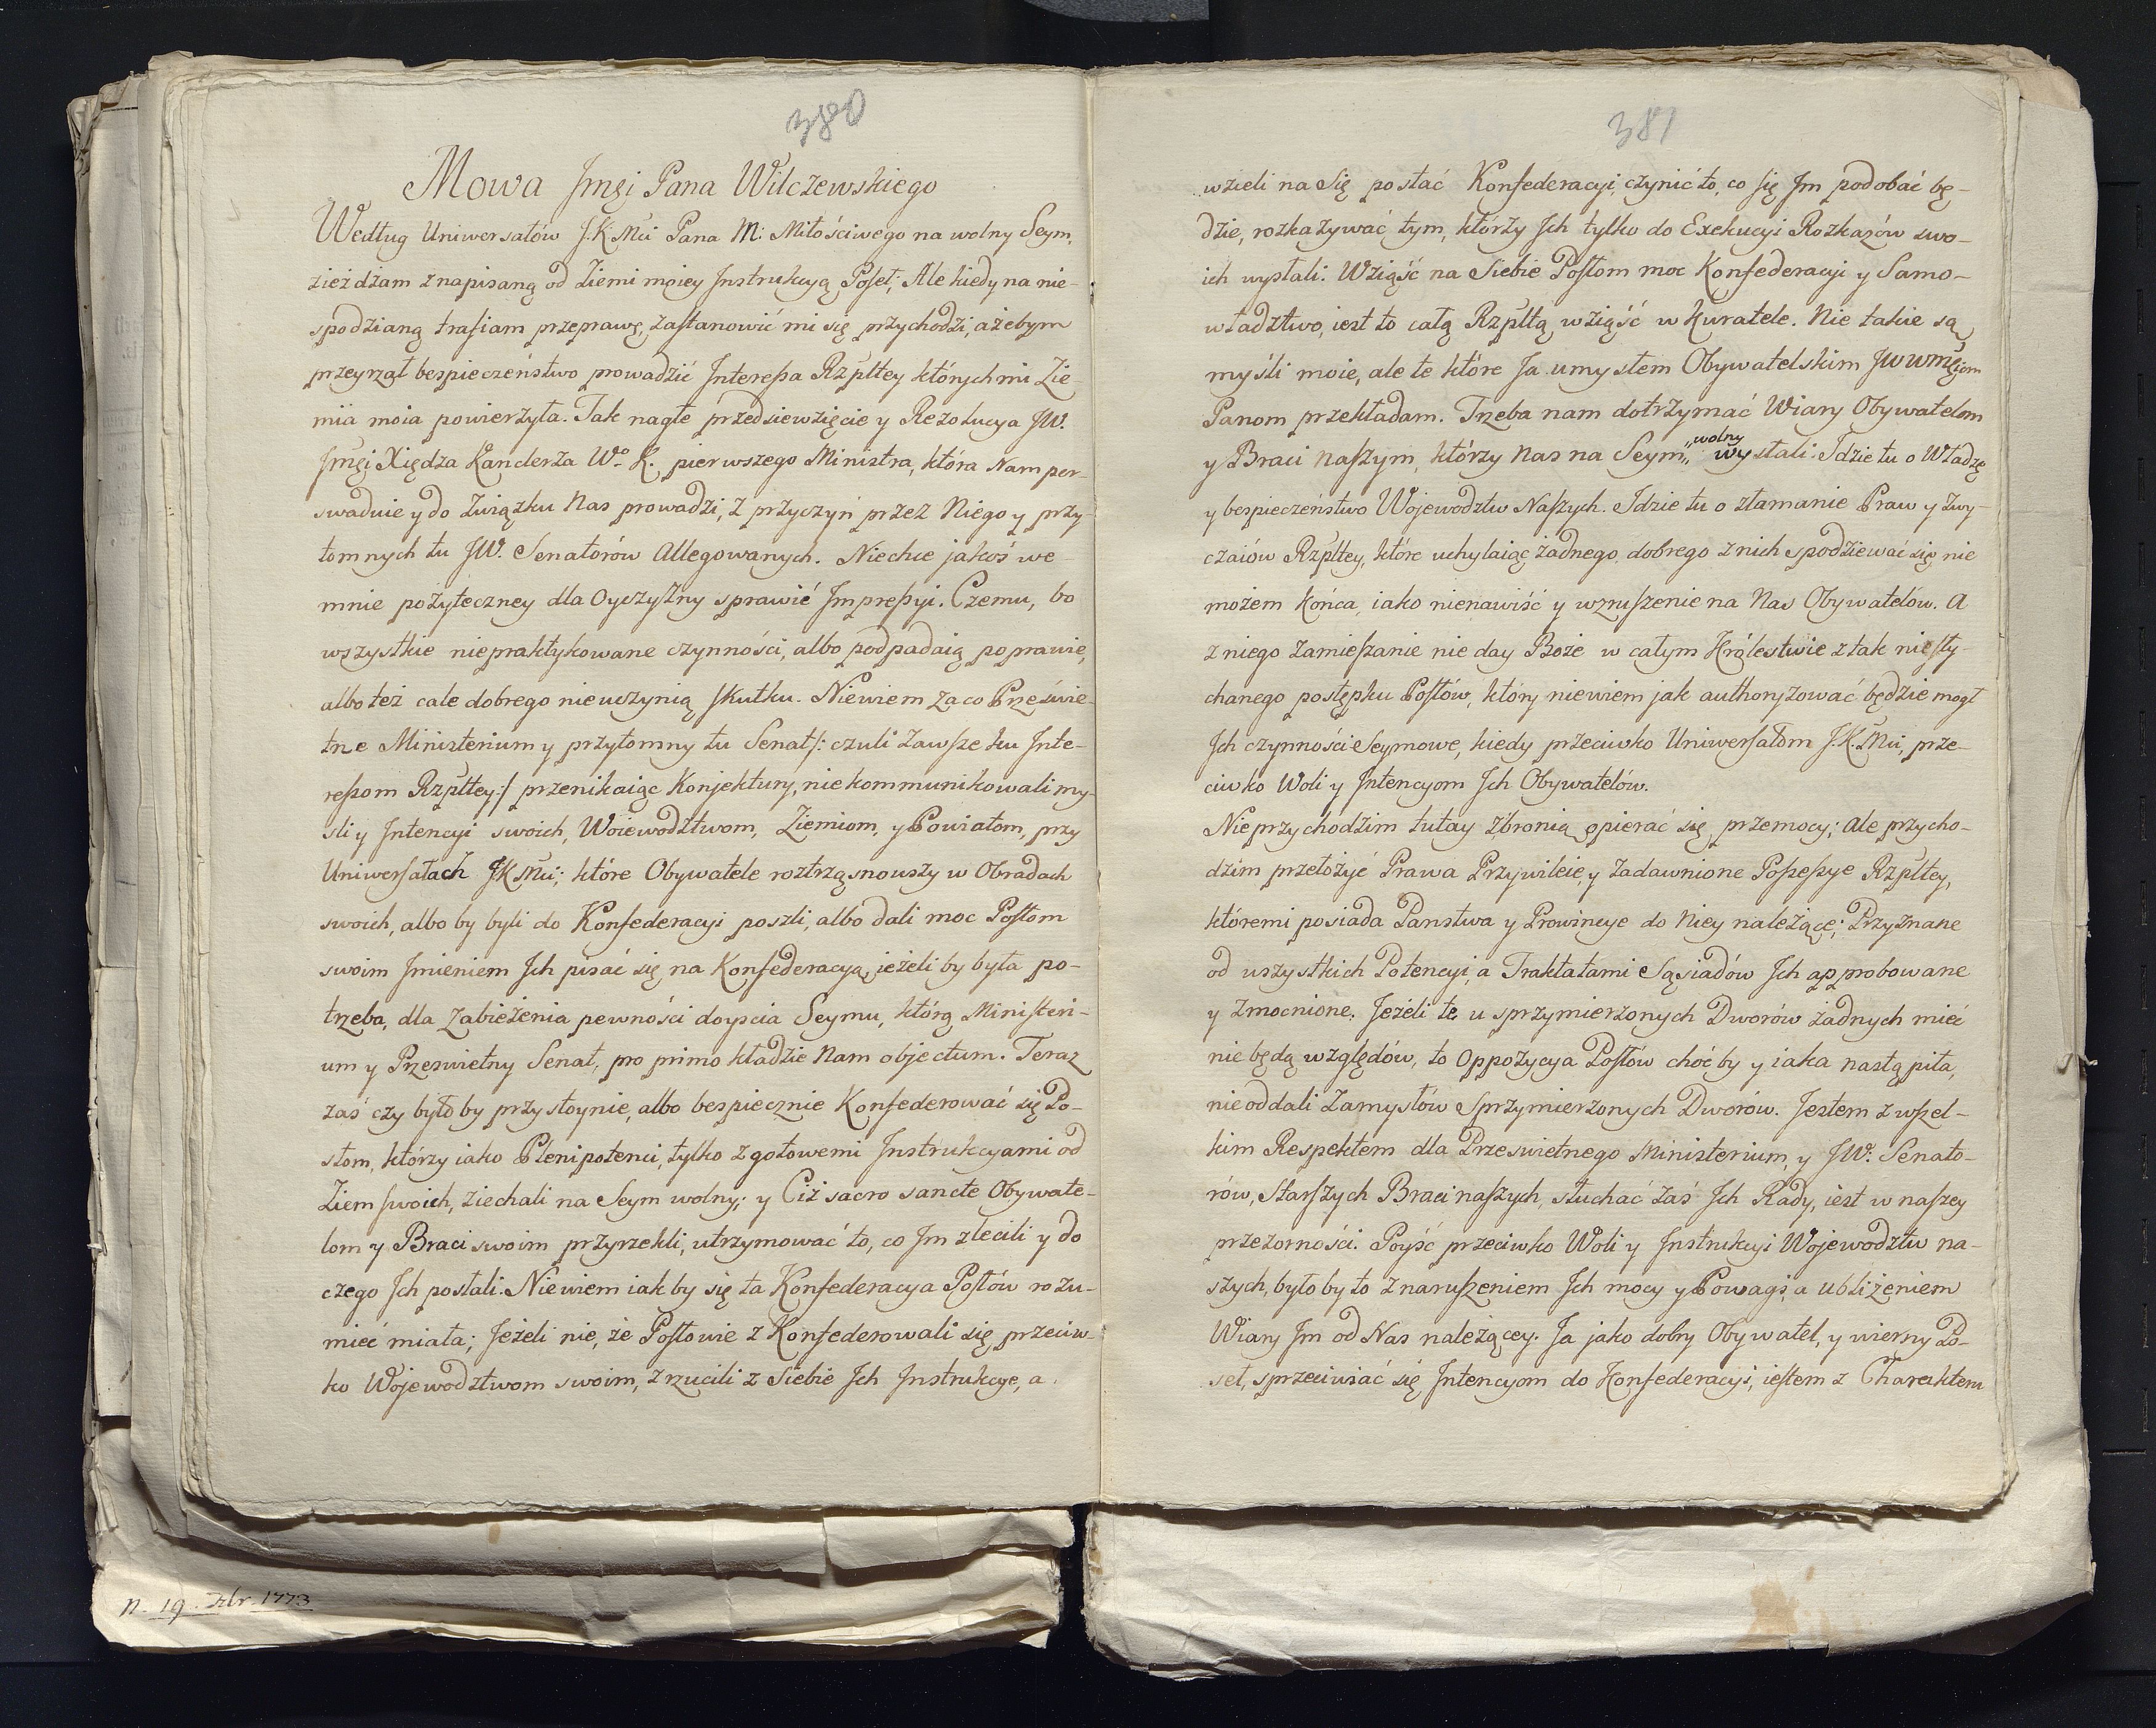 380
Mowa Jmći Pana Wilczewskiego
Według Uniwersałów J.K.Mći Pana M: Miłościwego na wolny Seym,
zieżdżam z napisaną od Ziemi moiey Instrukcyą Poseł; Ale kiedy na nie-
spodzianą trafiam przeprawę, zastanowić mi się przychodzi, ażebym
przeyrzał bespieczeństwo prowadzić Interessa Rzpltey których mi Zie-
mia moia powierzyła. Tak nagłe przedsiewzięcie y Rezolucya JW.
Jmći Xiędza Kanclerza Wo. K. pierwszego Ministra, która Nam per-
swaduie y do związku Nas prowadzi, z przyczyn przez Niego y przy-
tomnych tu JW. Senatorów Allegowanych. Niechce jakoś we-
mnie pożyteczney dla Oyczyzny sprawić Impressyi. Czemu, bo
wszystkie niepraktykowane czynności, albo podpadaią poprawie,
albo też cale dobrego nieuczynią skutku. Niewiem za co Prześwie-
tne Ministerium y przytomny tu Senat /: czuli zawsze ku Inte-
ressom Rzpltey :/ przenikaiąc Konjektury, nie kommunikowali my-
sli y Intencyi swoich, Woiewodztwom, Ziemiom, y Powiatom, przy
Uniwersałach JKMci; które Obywatele roztrząsnowszy w Obradach
swoich, albo by byli do Konfederacyi poszli, albo dali moc Posłom
swoim Jmieniem Jch pisać się na Konfederacyą, jeżeli by była po-
trzeba, dla zabieżenia pewności doyscia Seymu, którą Ministeri-
um y Przeswietny Senat, pro primo kładzie Nam objectum. Teraz
zaś czy było by przystoynie, albo bespiecznie Konfederować się Po-
słom, którzy iako Plenipotenci, tylko z gotowemi Instrukcyami od
Ziem swoich, ziechali na Seym wolny; y Ciż sacro sancte Obywate-
lom y Braci swoim przyrzekli, utrzymować to, co Jm zlecili y do
czego Jch posłali. Niewiem iak by się ta Konfederacya Posłów rozu-
mieć miała; Jeżeli nie, że Posłowie z Konfederowali się przeciw-
ko Wojewodztwom swoim, zrzucili z Siebie Jch Instrukcye, a
n. 19. Xbr. 1773
381
wzieli na Się postać Konfederacyi, czynić to, co się Jm podobać bę-
dzie, rozkazywać tym, którzy Jch tylko do Exekucyi Rozkazów swo-
ich wysłali. Wziąść na Siebie Posłom moc Konfederacyi y Samo-
władztwo, iest to całą Rzpltą wziąść w Kuratele. Nie takie są
myśli moie, ale te które Ja umysłem Obywatelskim JWWmćiom
Panom przekładam. Trzeba nam dotrzymać Wiary Obywatelom
y Braci naszym, którzy nas na Seym „wolny„ wysłali. Jdzie tu o Władzę
y bespieczeństwo Wojewodztw Naszych. Jdzie tu o złamanie Praw y Zwy-
czaiów Rzpltey, które uchylaiąc żadnego dobrego z nich spodziewać się nie
możem końca, iako nienawiść y wzruszenie na Nas Obywatelów. A
z niego zamieszanie nie day Boże w całym Królestwie z tak niesły-
chanego postępku Posłów, który niewiem jak authoryzować będzie mogł
Jch czynności Seymowe, kiedy przeciwko Uniwersałom J.K.Mci, prze-
ciwko Woli y Intencyom Jch Obywatelów.
Nie przychodzim tutay z bronią opierać się przemocy; Ale przycho-
dzim przełożyć Prawa Przywileie, y zadawnione Possessye Rzpltey,
któremi posiada Panstwa y Prowincye do Niey należące; Przyznane
od wszystkich Potencyi, a Traktatami Sąsiadów Jch approbowane
y zmocnione. Jeżeli te u sprzymierzonych Dworów żadnych mieć
nie będą względów, to Oppozycya Posłów choćby y iaka nastąpiła,
nie oddali Zamysłów Sprzymierzonych Dworów. Jestem z wszel-
kim Respektem dla Przeswietnego Ministerium, y JW. Senato-
rów, Starszych Braci naszych, słuchać zaś Jch Rady, iest w naszey
przezorności. Poyść przeciwko Woli y Instrukcyi Wojewodztw na-
szych, było by to z naruszeniem Jch mocy y Powagi, a ubliżeniem
Wiary Jm od Nas należącey. Ja jako dobry Obywatel, y wierny Po-
seł, sprzeciwiać się Intencyom do Konfederacyi, iestem z Charakteru